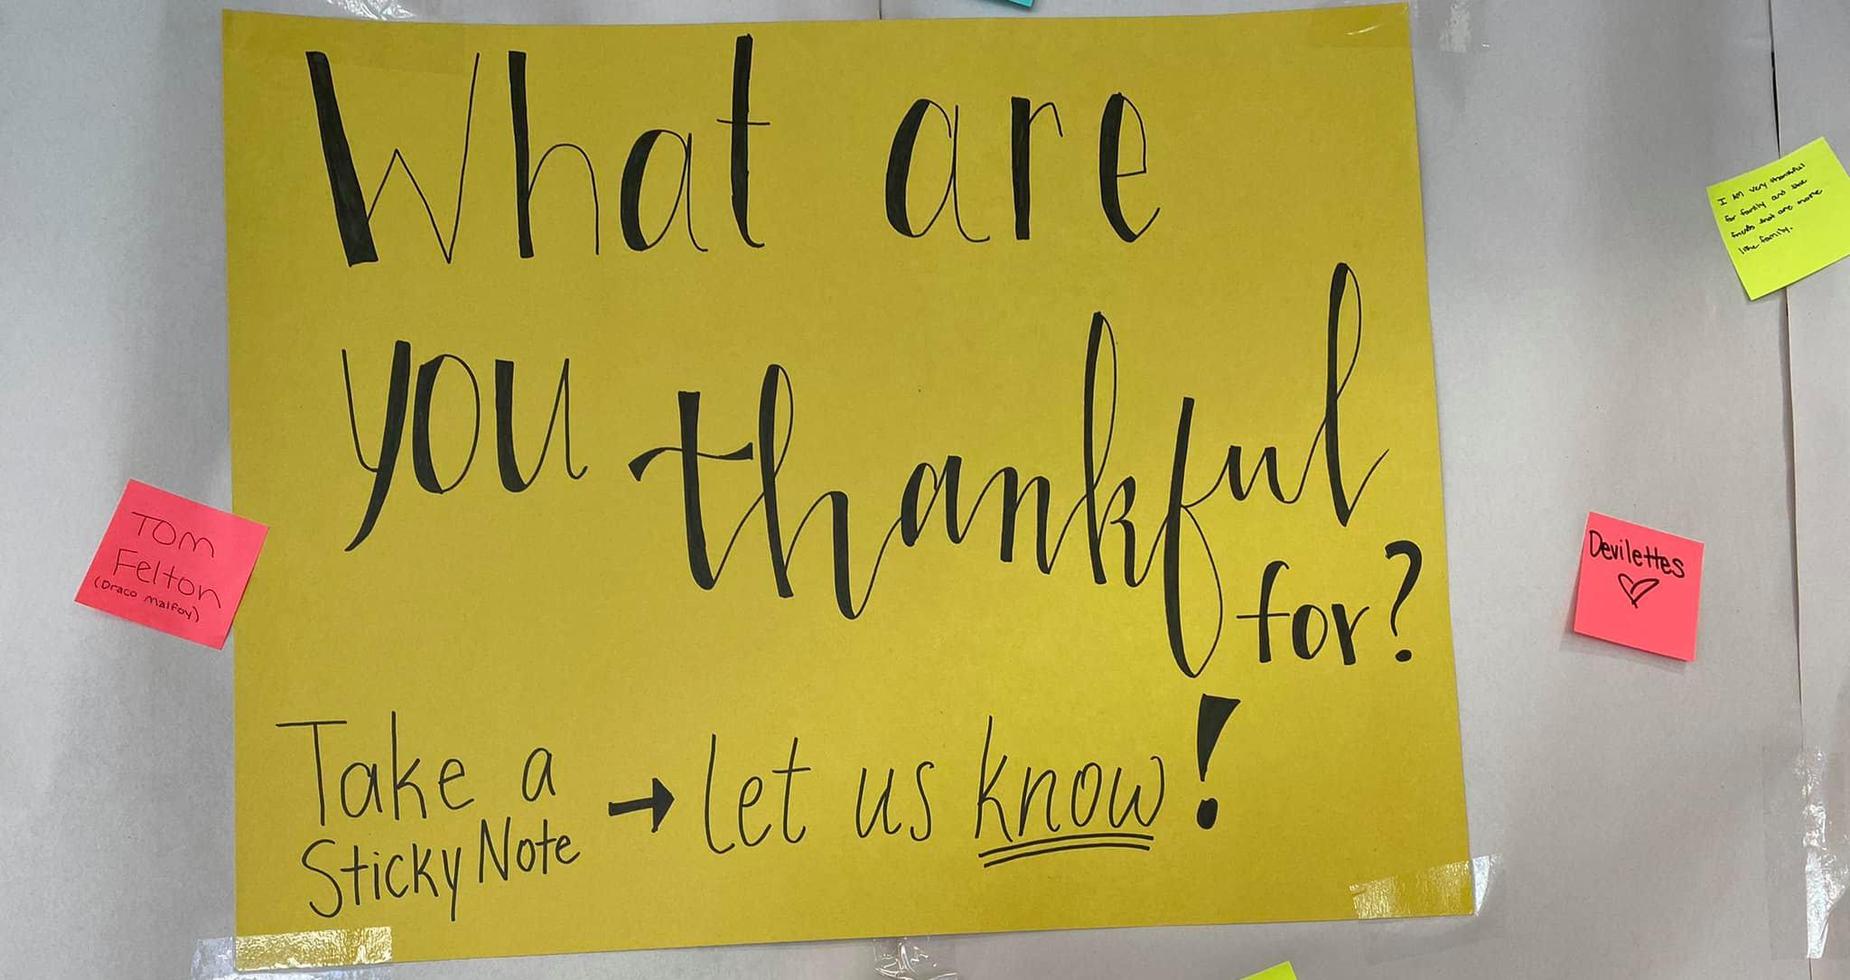 What are
you thankful
for?
Take a
Sticky Note → let us know!
TOM
Felton
(Draco Malfoy)
I am very thankful
for family and
friends that are more
like family.
Devilettes
♡